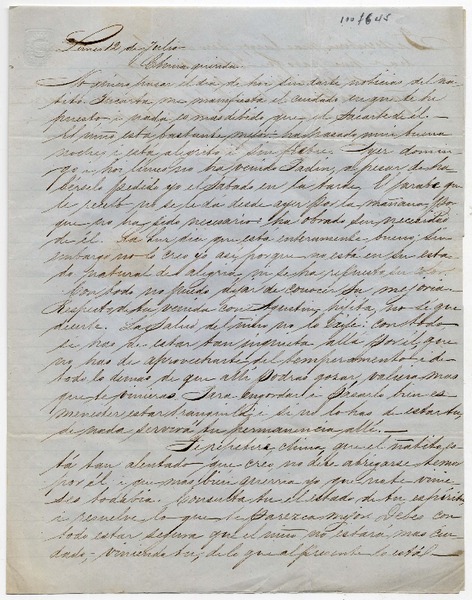 1007645
Lunes 12 de Julio
China querida:
No quiero pasar el dia de hoy sin darte noticias del ña-
tito. Tu carta me manifiesta el cuidado en que te he
puesto i nada es mas debido que el sacarte de él.
El niño está bastante mejor: ha pasado mui buena
noche i está alegrito i sin fiebre. Ayer domin-
go a por lunes no ha venido Padin, a pesar de ha-
bérselo pedido yo el Sabado en la tarde. El parabe que
le recetó no se le da desde ayer por la mañana, por-
que no ha sido necesario: ha obrado sin necesidad
de él. La Luz dice que está enteramente bueno, sin
embargo no lo creo yo asi, porque no está en su esta-
do natural de alegria, ni se ha repuesto en
Con todo no puedo dejar de conocer su mejoria
Respecto de tu venida con Agustin, hijita, no sé que
decirte. La salud del niño no lo exije: con todo
si has de estar tan inquieta allá por él, que
no has de aprovecharte del temperamento i de
todo lo demas de que alli podras gozar, valiera mas
que te vinieras. Para engordar i pasarlo bien es
menester estar tranquila, i si no lo has de estar tu,
de nada servirá tu permanencia alli.
Te repetiré, china, que el ñatito es-
tá tan alentado que creo no debe abrigarse temor
por él i que mas bien querria yo que no te vinie-
ses todabia. Consulta tu el estado de tu espiritu
i resuelve lo que te parezca mejor. Debes con
todo estar segura que el niño no estará mas cui-
dado, viniendo tu, de lo que al presente lo está.